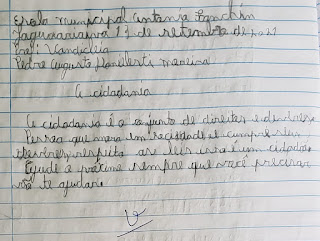 Escola Municipal Antonia
Jaguariaiva 17 de setembro de 2021
Prof: Vandicléia
Pedro Augusto Moreira
A cidadania
A cidadania é o conjunto de direitos e deveres
Pessoa que mora em sociedade e cumpri seus
deveres, respeita as leis isso é um cidadão
Ajude o próximo sempre que você precisar
vão te ajudar.